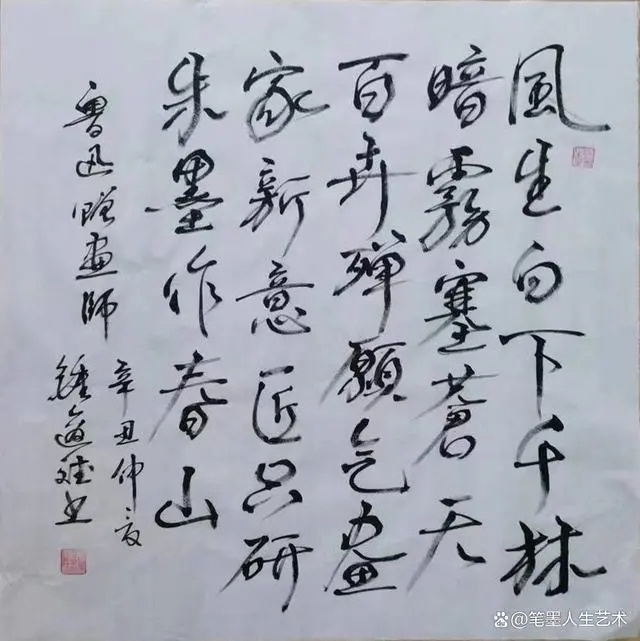 風生白下千林
暗霧塞蒼天
百卉殫願乞畫
家新意匠只研
朱墨作春山
魯迅贈畫師
辛丑仲夏
鍾道書
@笔墨人生艺术